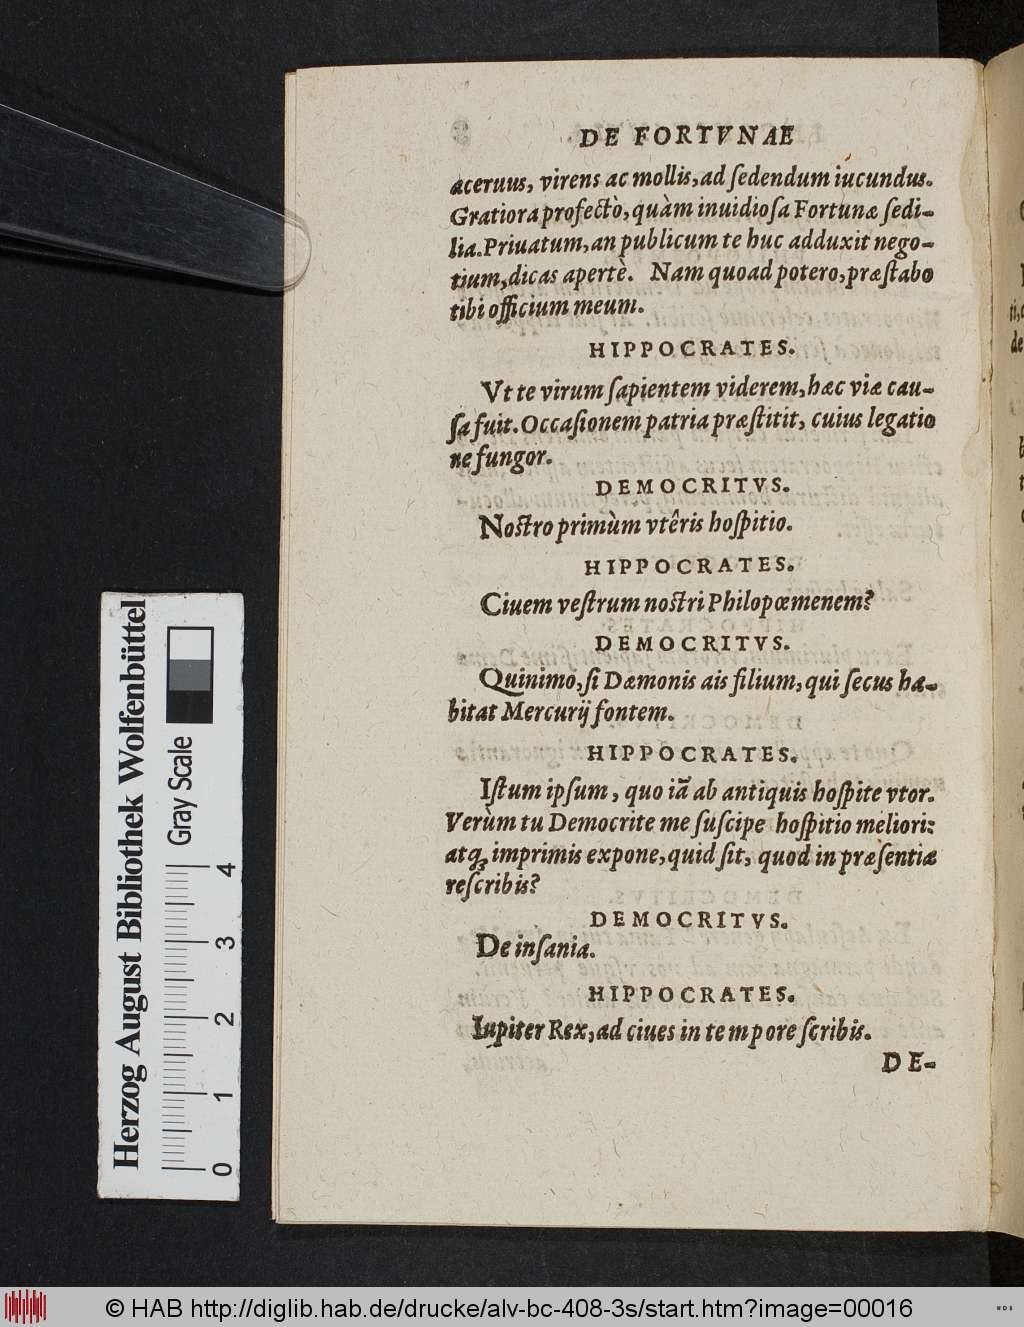 DE FORTVNAE
aceruus, virens ac mollis, ad ſedendum iucundus.
Gratiora profectò, quàm inuidioſa Fortunæ ſedi-
lia. Priuatum, an publicum te huc adduxit nego-
tium, dicas apertè. Nam quoad potero, præſtabo
tibi officium meum.
HIPPOCRATES.
Vt te virum ſapientem viderem, hæc viæ cau-
ſa fuit. Occaſionem patria præſtitit, cuius legatio
ne fungor.
DEMOCRITVS.
Noſtro primùm vtêris hoſpitio.
HIPPOCRATES.
Ciuem veſtrum noſtri Philopœmenem?
DEMOCRITVS.
Quinimo, ſi Dæmonis ais filium, qui ſecus hæ-
bitat Mercurij fontem.
HIPPOCRATES.
Iſtum ipſum, quo iã ab antiquis hoſpite vtor.
Verùm tu Democrite me ſuſcipe hoſpitio meliori:
atq; imprimis expone, quid ſit, quod in præſentiæ
reſcribis?
DEMOCRITVS.
De inſania.
HIPPOCRATES.
Iupiter Rex, ad ciues in tempore ſcribis.
DE-
Herzog August Bibliothek Wolfenbüttel
Gray Scale
0 1 2 3 4
© HAB http://diglib.hab.de/drucke/alv-bc-408-3s/start.htm?image=00016